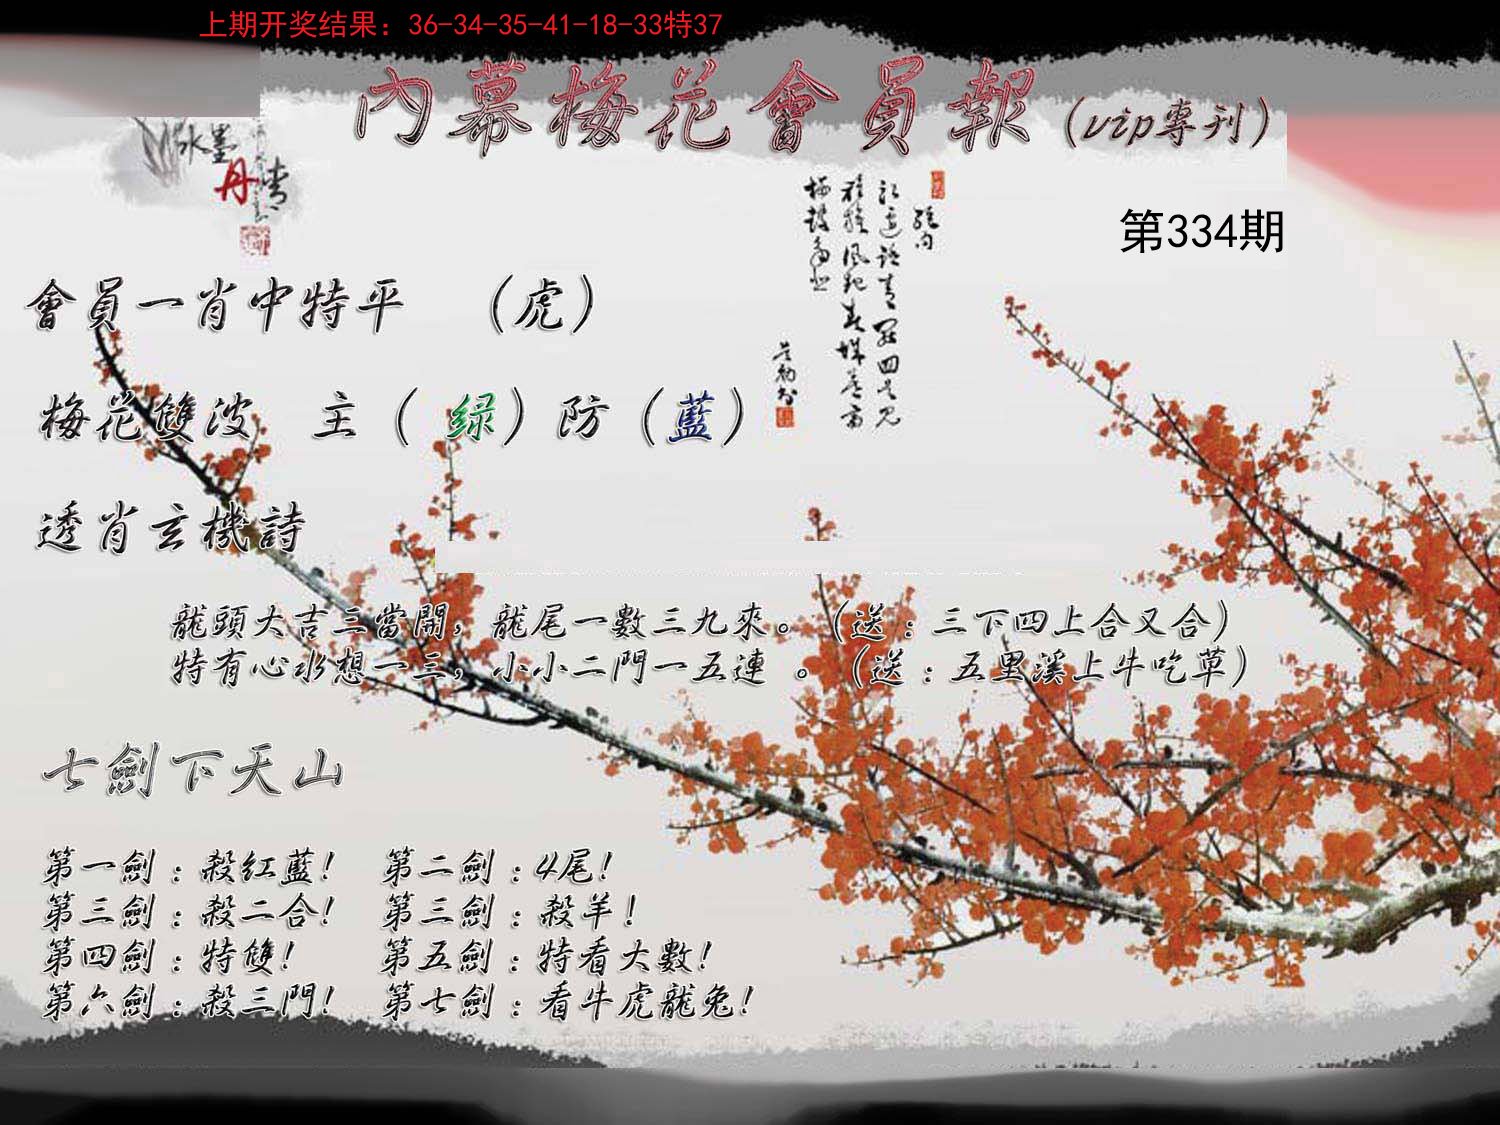 上期开奖结果：36-34-35-41-18-33特37
內幕梅花會員報（vip專刊）
水墨
丹青
第334期
會員一肖中特平 （虎）
梅花雙波 主（绿）防（藍）
透肖玄機詩
龍頭大吉三當開，龍尾一數三九來。（送：三下四上合又合）
特有心水想一三，小小二門一五連 。（送：五里溪上牛吃草）
七劍下天山
第一劍：殺紅藍！ 第二劍：4尾！
第三劍：殺二合！ 第三劍：殺羊！
第四劍：特雙！ 第五劍：特看大數！
第六劍：殺三門！ 第七劍：看牛虎龍兔！